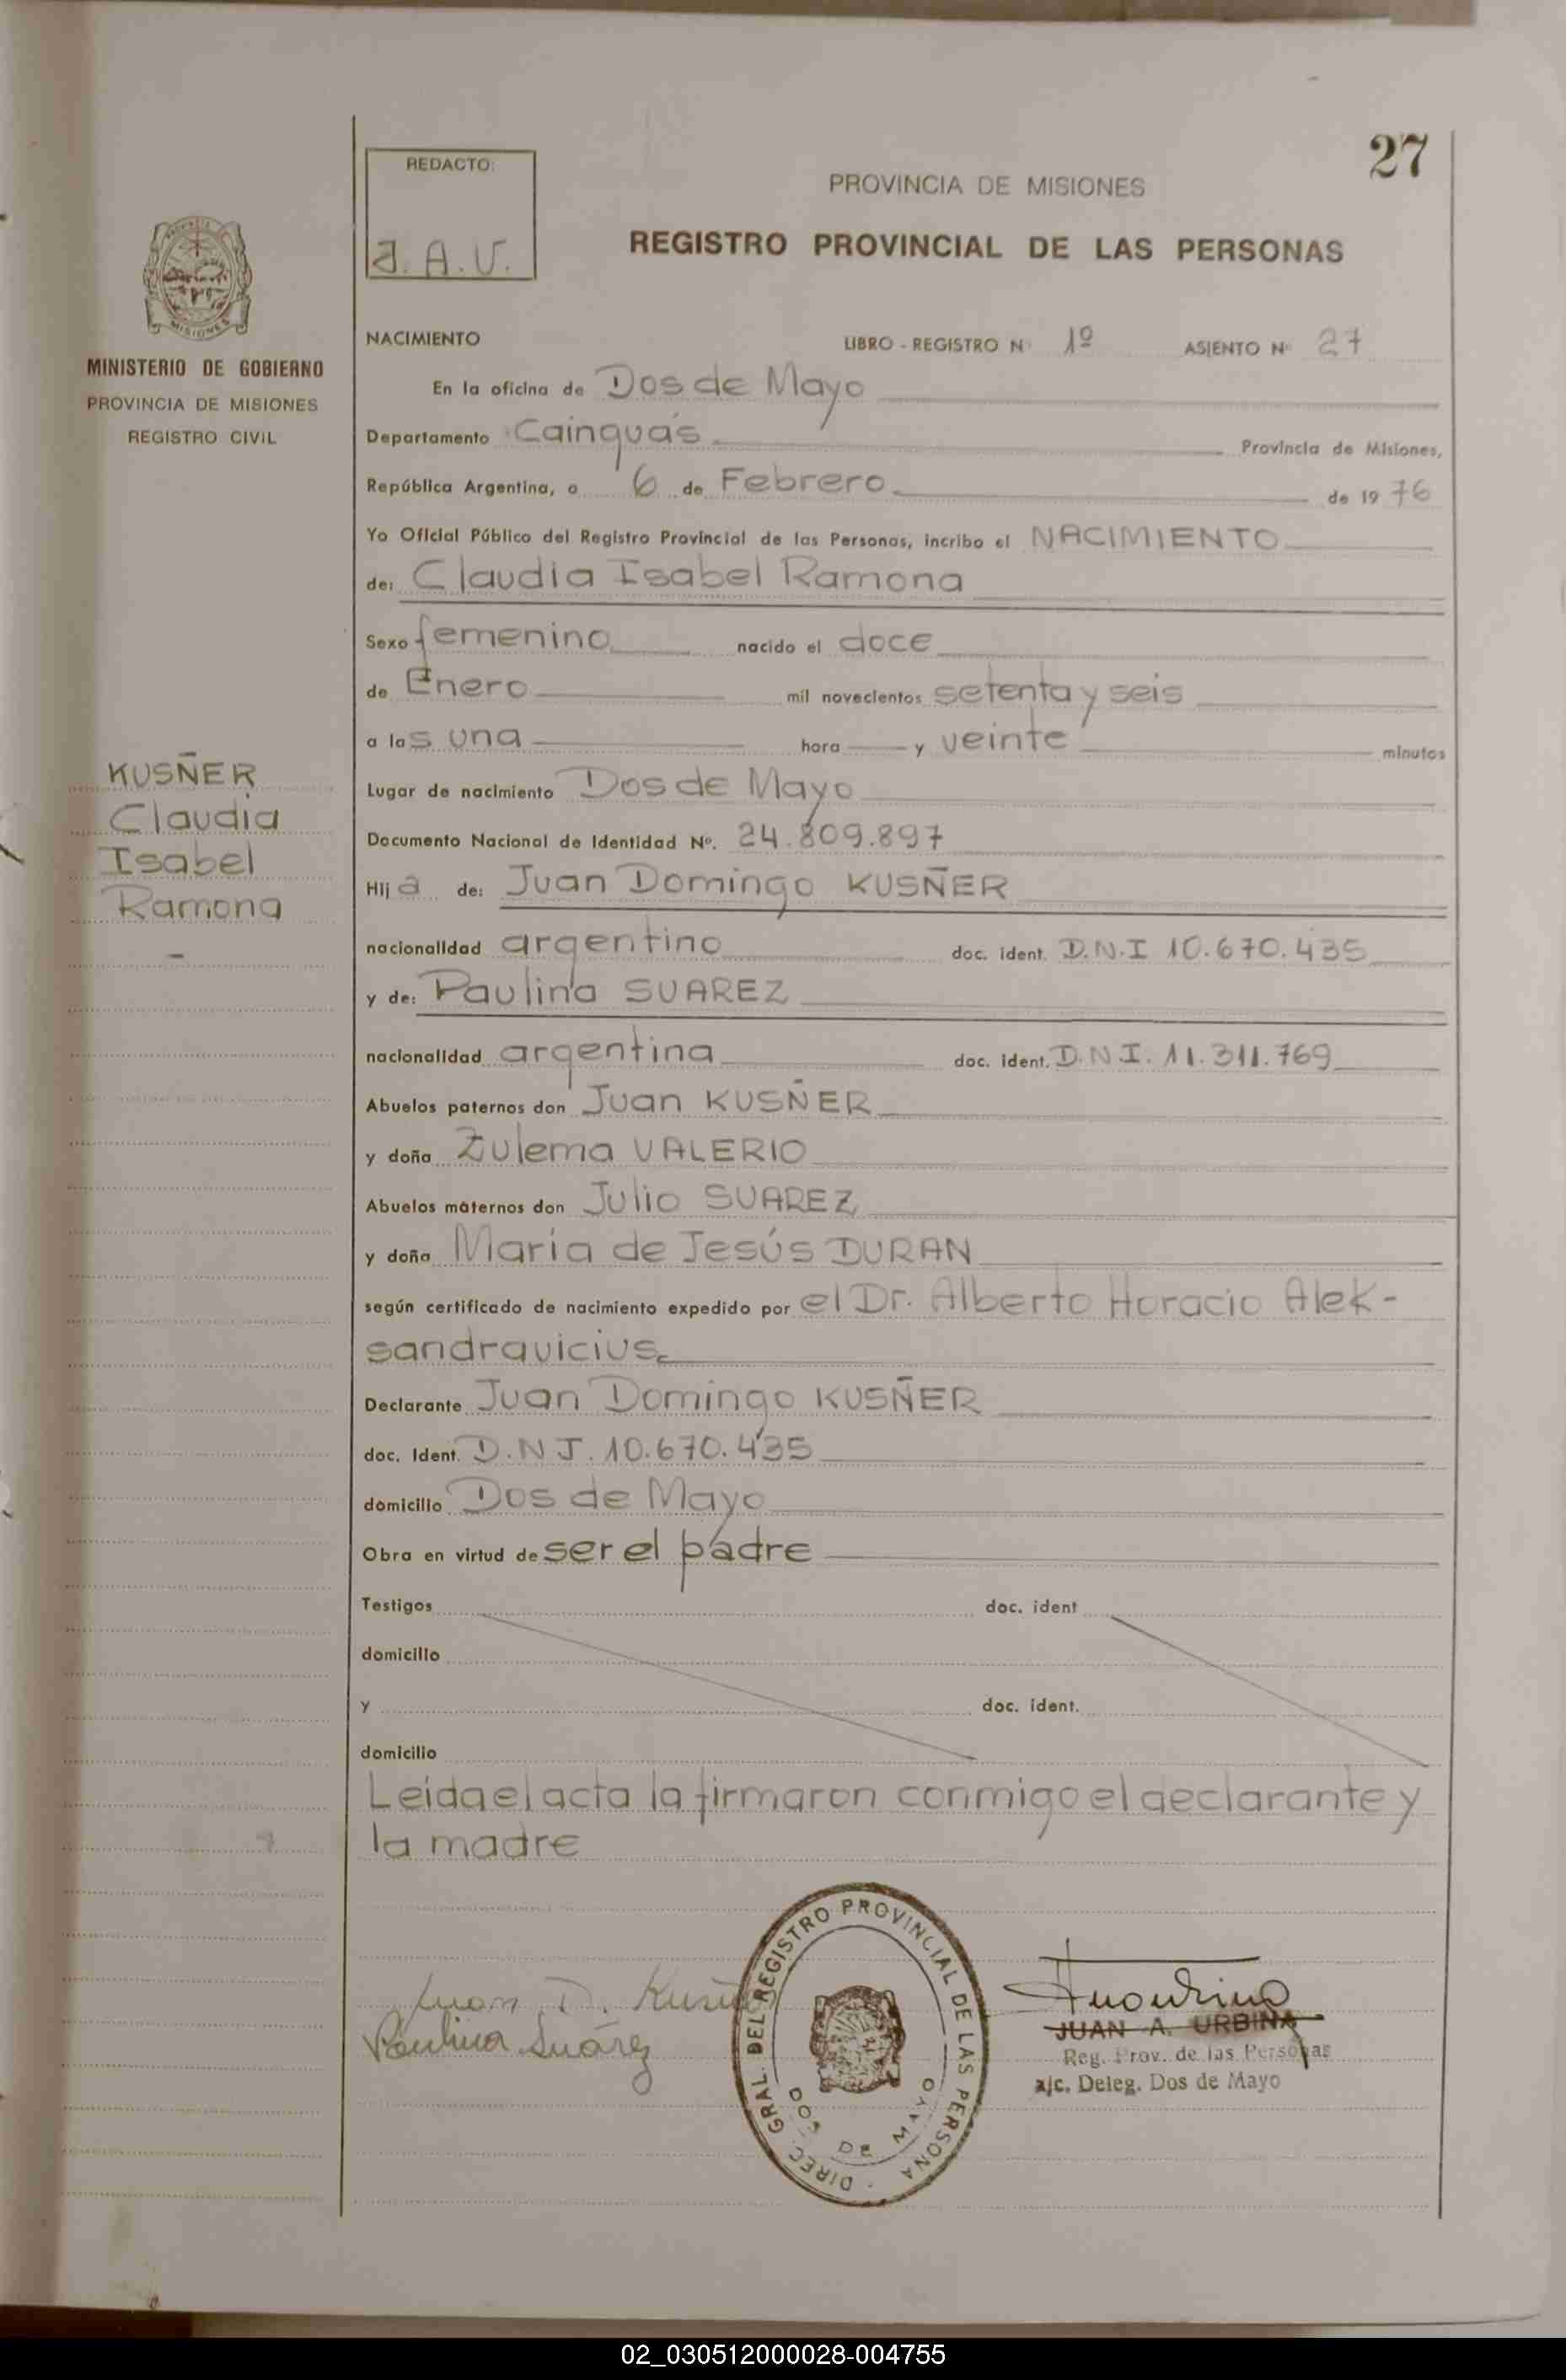 27
REDACTO:
J. A. U.
PROVINCIA DE MISIONES
REGISTRO PROVINCIAL DE LAS PERSONAS
MISIONES
MINISTERIO DE GOBIERNO
PROVINCIA DE MISIONES
REGISTRO CIVIL
KUSÑER
Claudia
Isabel
Ramona
-
NACIMIENTO LIBRO - REGISTRO Nº 1º ASIENTO Nº 27
En la oficina de Dos de Mayo
Departamento Cainguás Provincia de Misiones,
República Argentina, a 6 de Febrero de 19 76
Yo Oficial Público del Registro Provincial de las Personas, incribo el NACIMIENTO
de: Claudia Isabel Ramona
Sexo femenino nacido el doce
de Enero mil novecientos setenta y seis
a las una hora y veinte minutos
Lugar de nacimiento Dos de Mayo
Documento Nacional de Identidad Nº. 24.809.897
Hija de: Juan Domingo KUSÑER
nacionalidad argentino doc. ident. D.N.I 10.670.435
y de: Paulina SUAREZ
nacionalidad argentina doc. ident. D.N.I. 11.311.769
Abuelos paternos don Juan KUSÑER
y doña Zulema VALERIO
Abuelos maternos don Julio SUAREZ
y doña María de Jesús DURAN
según certificado de nacimiento expedido por el Dr. Alberto Horacio Alek-
sandravicius
Declarante Juan Domingo KUSÑER
doc. Ident. D.N.I. 10.670.435
domicilio Dos de Mayo
Obra en virtud de ser el padre
Testigos doc. ident
domicilio
y doc. ident.
domicilio
Leida el acta la firmaron conmigo el declarante y
la madre
Juan D. Kusñ
Paulina Suárez
DIREC. GRAL. DEL REGISTRO PROVINCIAL DE LAS PERSONA
DOS DE MAYO
JUAN A. URBINA
Reg. Prov. de las Personas
a/c. Deleg. Dos de Mayo
02_030512000028-004755